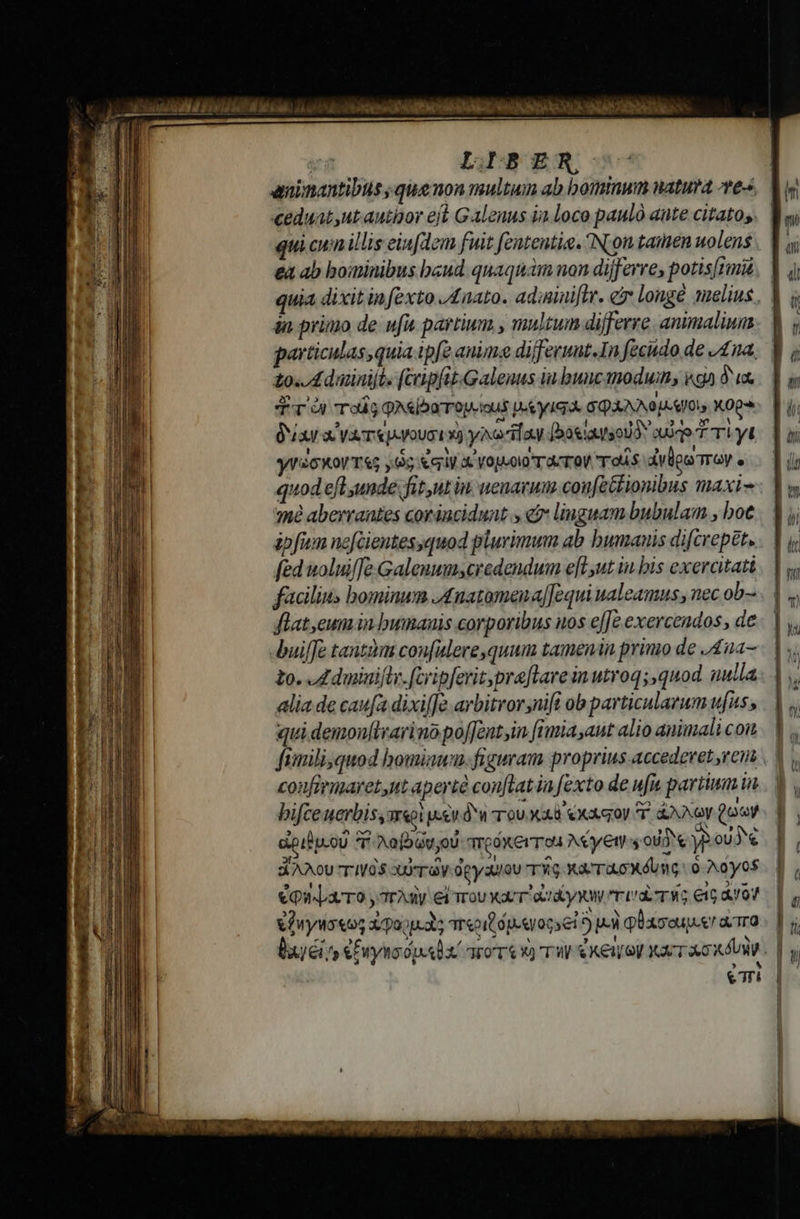 LIBER
animantibus, quæ non multum ab hominum natura re-
cedunt, ut author est Galenus in loco paulò ante citato,
qui cum illis eiusdem fuit sententiæ. Non tamen uolens
ea ab hominibus haud quaquàm non differre, potissimũ
quia dixit in sexto Anato. administr. &amp; longè melius
in primo de usu partium, multum differre animalium
particulas, quia ipsæ animæ differunt. In secũdo de Ana
to. Administ. scripsit Galenus in hunc modum, καὶ διὰ
τῶν ταῖς φλεβοτομίαις μέγιστα σφαλλομένοις, καρ-
δίαν ἀνατέμνουσι καὶ γλῶτταν βοείαν, οὐδ' αὐτὸ τοῦτο γι
γνώσκοντες, ὡς ἐστὶν ἀνομοιότατον τοῖς ἀνθρώπων.
quod est, unde fit, ut in uenarum consectionibus maxi-
mè aberrantes cor incidunt, &amp; linguam bubulam, hoc
ipsum nescientes, quod plurimum ab humanis discrepẽt.
sed uoluisse Galenum, credendum est, ut in his exercitati
facilius hominum Anatomen assequi ualeamus, nec ob-
stat, eum in humanis corporibus nos esse exercendos, de
buisse tantùm consulere, quum tamen in primo de Ana-
to. Administr. scripserit, præstare in utroq;, quod nulla
alia de causa dixisse arbitror, nisi ob particularum usus,
qui demonstrari nõ possent, in simia, aut alio animali con
simili, quod hominum figuram proprius accederet, rem
confirmaret, ut apertè constat in sexto de usu partium in
hisce uerbis, περὶ μὲν δὴ τοῦ καθ' ἕκαστον τῶν ἄλλων ζώων
ἀριθμοῦ τῶν λοβῶν, οὐ πρόκειται λέγειν, οὐδὲ γὰρ οὐδὲ
ἄλλου τινὸς αὐτῶν ὀργάνου τῆς κατασκευῆς ὁ λόγος
ἐφήψατο, πλὴν εἴ που κατ' ἀνάγκην τινὰ τῆς εἰς ἄνθ
ἐξηγήσεως ἀφορμὰς ποριζόμενος, εἰ δὲ μὴ φθάσαιμεν ἀπο
θανεῖν, ἐξηγησόμεθά ποτε καὶ τὴν ἐκείνων κατασκευὴν
ἐπὶ